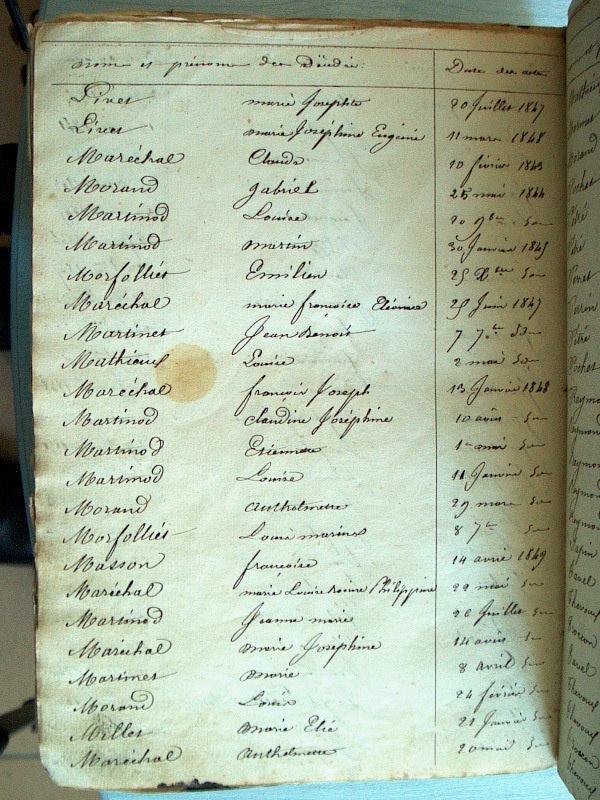 nom et prénom des Décédés. Date des actes
Livet marie Josephte 20 Juillet 1847
Livet marie Joséphine Eugénie 11 mars 1848
Maréchal Claude 10 février 1843
Morand gabriel 25 mai 1844
Martinod Louise 20 9bre Do
Martinod martin 30 Janvier 1845
Morfolliet Emilien 25 Xbre Do
Maréchal marie françoise Eléonise 25 Juin 1847
Martinet Jean Benoit 7 7bre Do
Mathieux Louise 2 mai Do
Maréchal françois Joseph 13 Janvier 1848
Martinod Claudine Joséphine 10 août Do
Martinod Etiennette 1er mai Do
Martinod Louise 11 Janvier Do
Morand Anthelmette 29 mars Do
Morfolliet Louis marinus 8 7bre Do
Masson françoise 14 avril 1849
Maréchal marie Louise Philippine 22 mai Do
Martinod Jeanne marie 26 Juillet Do
Maréchal marie Joséphine 14 août Do
Martinet marie 8 Avril Do
Morand Louis 24 février Do
Millet marie Elié 21 Janvier Do
Maréchal Anthelmette 20 mai Do